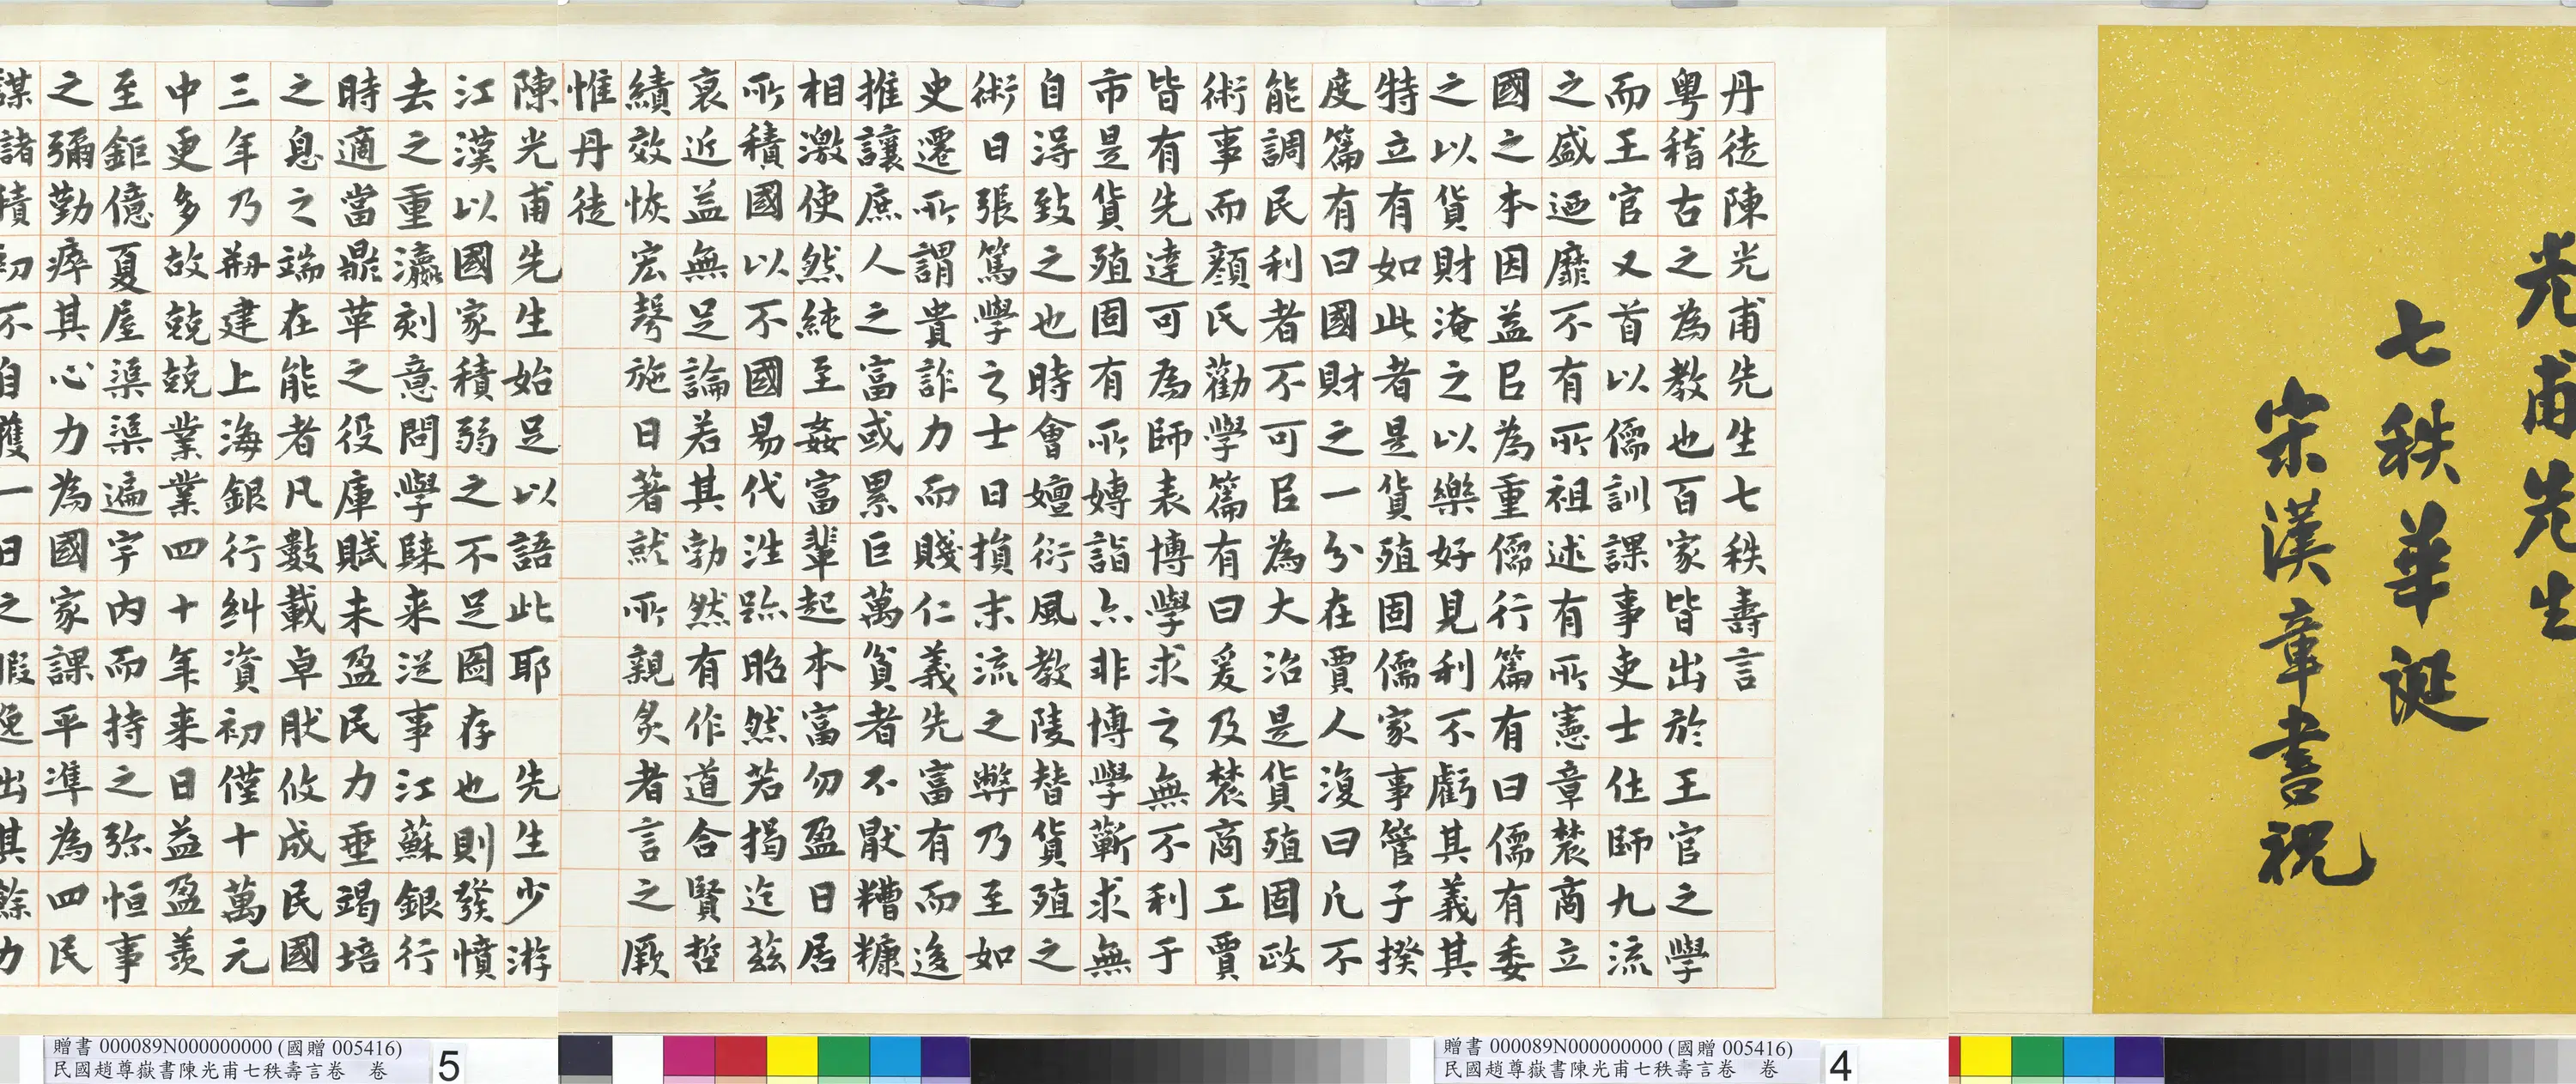 光甫先生
七秩華誕
宋漢章書祝
丹徒陳光甫先生七秩壽言
粵稽古之為教也百家皆出於王官之學
而王官又首以儒訓課事吏士任師九流
之盛迺靡不有所祖述有所憲章農商立
國之本因益㠯為重儒行篇有曰儒有委
之以貨財淹之以樂好見利不虧其義其
特立有如此者是貨殖固儒家事管子揆
度篇有曰國財之一分在賈人復曰凡不
能調民利者不可㠯為大治是貨殖固政
術事而顏氏勸學篇有曰爰及農商工賈
皆有先達可為師表博學求之無不利于
市是貨殖固有所嫥詣亦非博學蘄求無
自得致之也時會嬗衍風教陵替貨殖之
術日張篤學之士日損末流之弊乃至如
史遷所謂貴詐力而賤仁義先富有而後
推讓庶人之富或累巨萬貧者不猒糟糠
相激使然純至姦富輩起本富勿盈日居
所積國以不國易代跡昭然若揭迄茲
裒近益無足論若其勃然有作道合賢哲
績效恢宏聲施日著就所親炙者言之厥
惟丹徒
陳光甫先生始足以語此耶 先生少游
江漢以國家積弱之不足圖存也則發憤
去之重瀛刻意問學来從事江蘇銀行
時適當鼎革之役庫賦未盈民力垂竭培
之息之端在能者凡數載卓肰攸成民國
三年乃剏建上海銀行糾資初僅十萬元
中更多故兢兢業業四十年来日益盈羨
至鉅億夏屋渠渠遍宇內而持之弥恒事
之彌勤瘁其心力為國家課平準為四民
謀諸積初不自獲一日之暇逸出其餘力
贈書 000089N000000000 (國贈 005416)
民國趙尊嶽書陳光甫七秩壽言卷 卷
4
贈書 000089N000000000 (國贈 005416)
民國趙尊嶽書陳光甫七秩壽言卷 卷
5